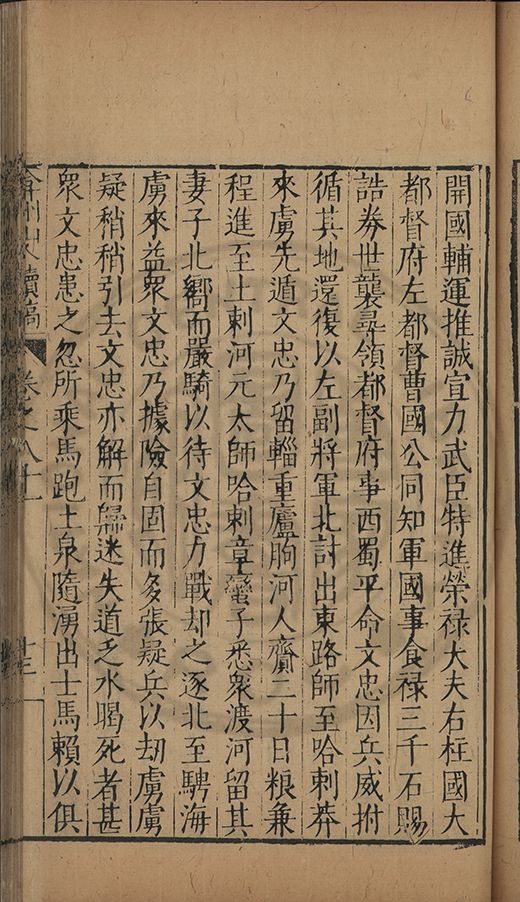 開國輔運推誠宣力武臣特進榮祿大夫右柱國大
都督府左都督曹國公同知軍國事食祿三千石賜
誥券世襲尋領都督府事西蜀平命文忠因兵威拊
循其地還復以左副將軍北討出東路師至哈剌莽
來虜先遁文忠乃留輜重廬朐河人齎二十日粮兼
程進至土剌河元太師哈剌章蠻子悉衆渡河留其
妻子北嚮而嚴騎以待文忠力戰却之逐北至騁海
虜來益衆文忠乃據險自固而多張疑兵以刧虜虜
疑稍稍引去文忠亦解而歸迷失道乏水暍死者甚
衆文忠患之忽所乘馬跑土泉隨湧出士馬賴以俱
弇州山人續稿 卷之八十一 十三